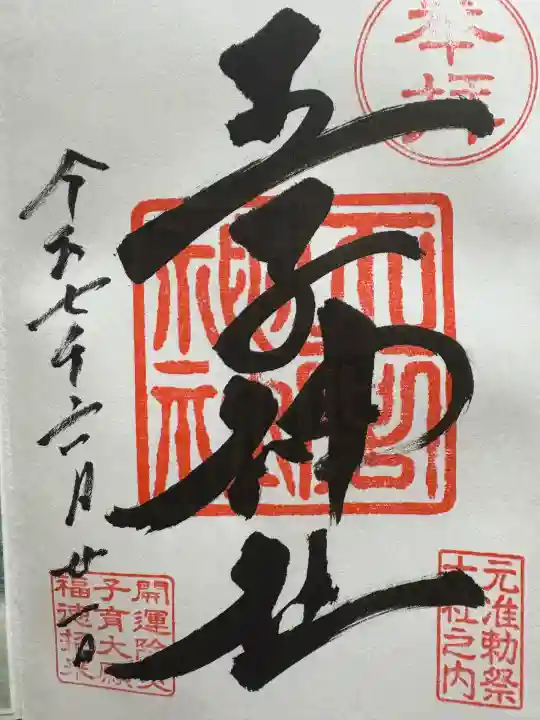 奉拝
王子神社
令和七年六月廿一日
元准勅祭
十社之内
開運除災
子育大願
福徳招来